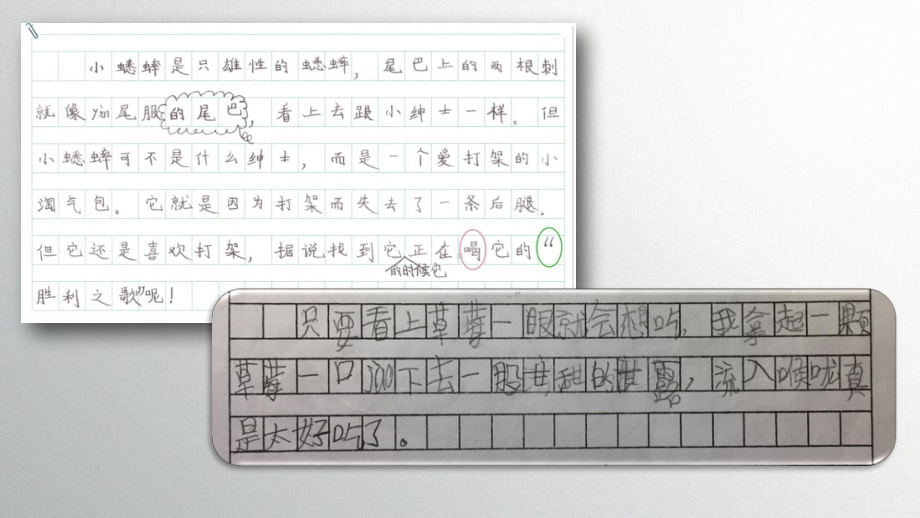 小蟋蟀是只雄性的蟋蟀，尾巴上的两根刺
就像yàn尾服的尾巴，看上去跟小绅士一样。但
小蟋蟀可不是什么绅士，而是一个爱打架的小
淘气包。它就是因为打架而失去了一条后腿。
但它还是喜欢打架，据说找到它正在喝它的“
的时候它
胜利之歌”呢！
只要看上草莓一眼就会想吃，我拿起一颗
草莓一口 下去一股甘甜的甘露，流入喉咙真
是太好吃了。